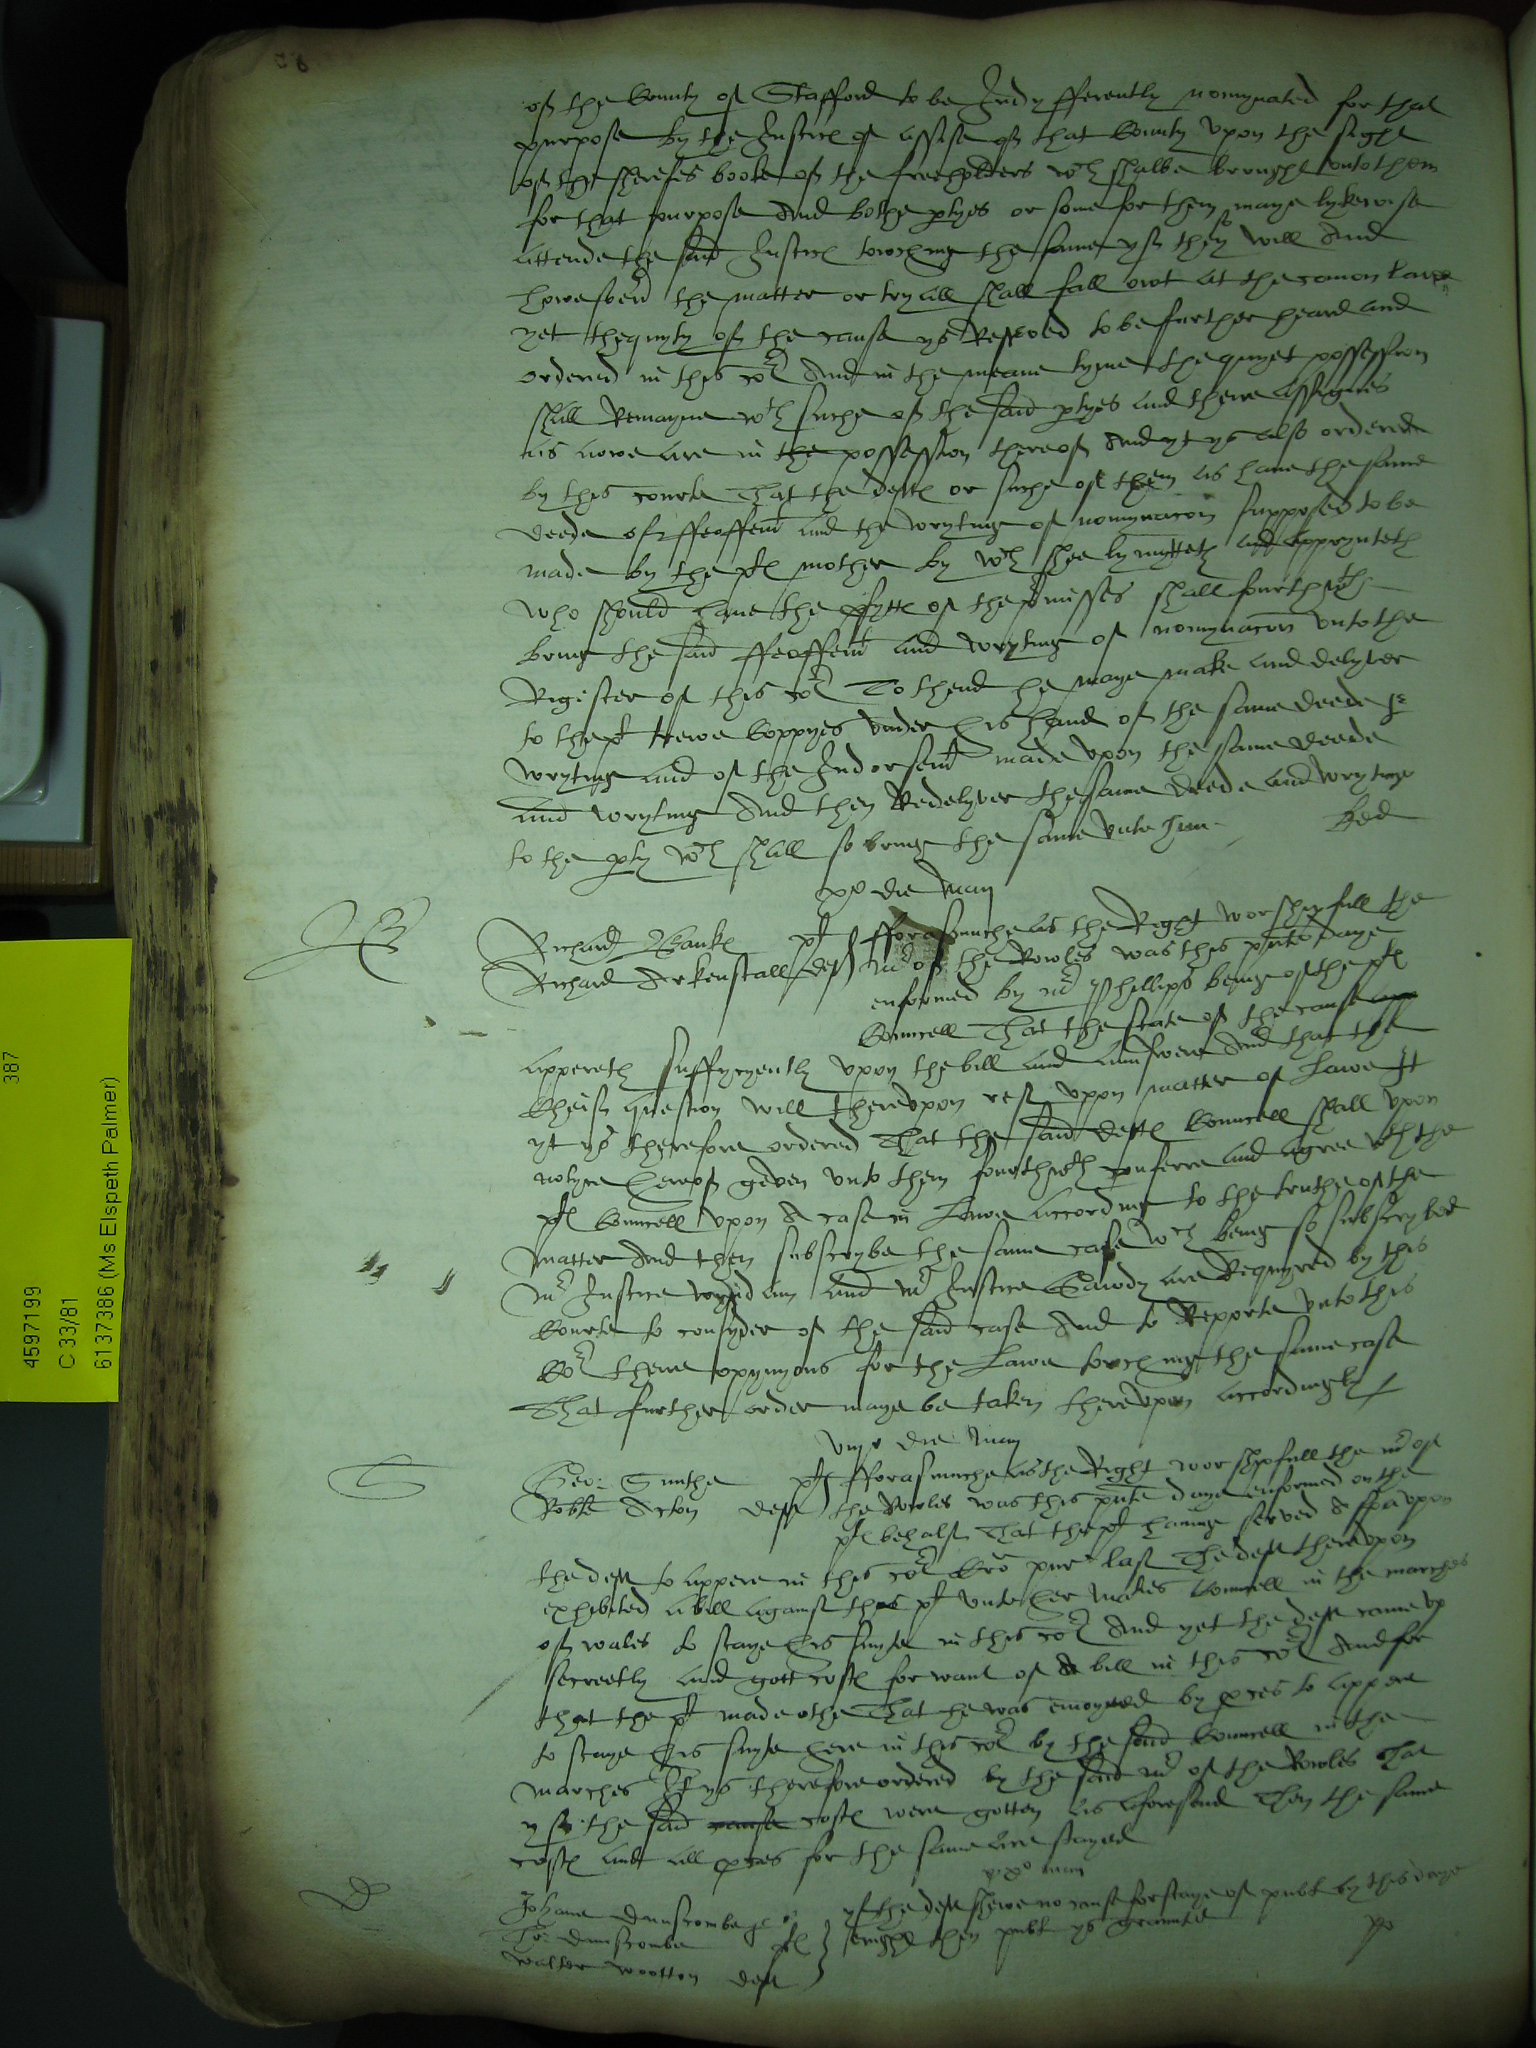 of the County of Stafford to be Indyfferently nomynated for that
purpose by the Justices of Assise of that County vpon the sight
of the Sherefes booke of the freeholders wch shalbe brought vnto them
for that purpose And bothe ptyes or some for them maye lykewise
Attende the said Justices towching the same yf they will And
howesoeu the matter or tryall shall fall owt at the comon Lawe
yet thequyty of the cause ys Reserved to be further heard and
ordered in this cot And in the meane tyme the quyet possession
shall Remayne wth suche of the said ptyes and theire Assignes
as nowe are in the possession thereof And yt ys also ordered
by this courte That the deftes or suche of them as haue the same
deede of ffeoffemt and the wryting of nomynacon supposed to be
made by the ples mother by wch shee lymytteth and appoynteth
who should haue the pfytte of the pmisses shall fourthwth
bring the said ffeoffemt and wryting of nomynacon vnto the
Register of this cot To thend he maye make and delyver
to the pl trewe Coppyes vnder his hand of the same deede &
wryting and of the Indorsemt made vpon the same deede
and wryting And then Redelyver the same deede and wryting
to the pty wch shall so bring the same vnto him
die Maij
Richard Bankes pl
Richard Arkenstall def
fforasmuche as the Right worshipfull the
Mr of the Rowles was this pnte daye
enformed by Mr Phillips being of the ples
Councell That the state of the cause
Appereth suffycyently vpon the bill and aunswere And that the
Cheif question will therevpon rest vpon matter of Lawe It
yt ys therefore ordered That the said deftes Councell shall vpon
notyce hereof geven vnto them fourthwth conferre and agree wth the
ples Councell vpon A case in Lawe According to the truthe of the
matter And then subscrybe the same case wch being so subscrybed
Mr Justice wyndam and Mr Justice Gawdy are Requyred by this
Courte to consyder of the said case And to Reporte vnto this
Cot theire opynyons for the Lawe towching the same case
That further order maye be taken therevpon Accordingly
die Maij
Geo: Smithe pl
Robte Acton deft
fforasmuche as the Right worshipfull the Mr of
the Rowles was this pnte daye enformed on the
ples behalf That the pl having served A spa vpon
the deft to Appere in this cot Cro pur last The deft therevpon
exhibited A bill against the pl vnto her Maties Councell in the marches
of wales to staye his suyte in this cot And yet the deft came vp
secreetly and gott costes for want of A bill in this cot And for
that the pl made othe That he was enioyned by pces to Appere
to staye his suyte here in this cot by the said Councell in the
marches It ys therefore ordered by the said Mr of the Rowles That
yf the said cause costes were gotten as aforesaid Then the same
costes and all pces for the same are stayed
maij
Johane Dunscombe
Tho: Dunscombe ples
Walter Wootton deft
yf the deft shewe no cause for staye of publ by this daye
then publ ys graunted
4597199
C 33/81
6137386 (Ms Elspeth Palmer)
387